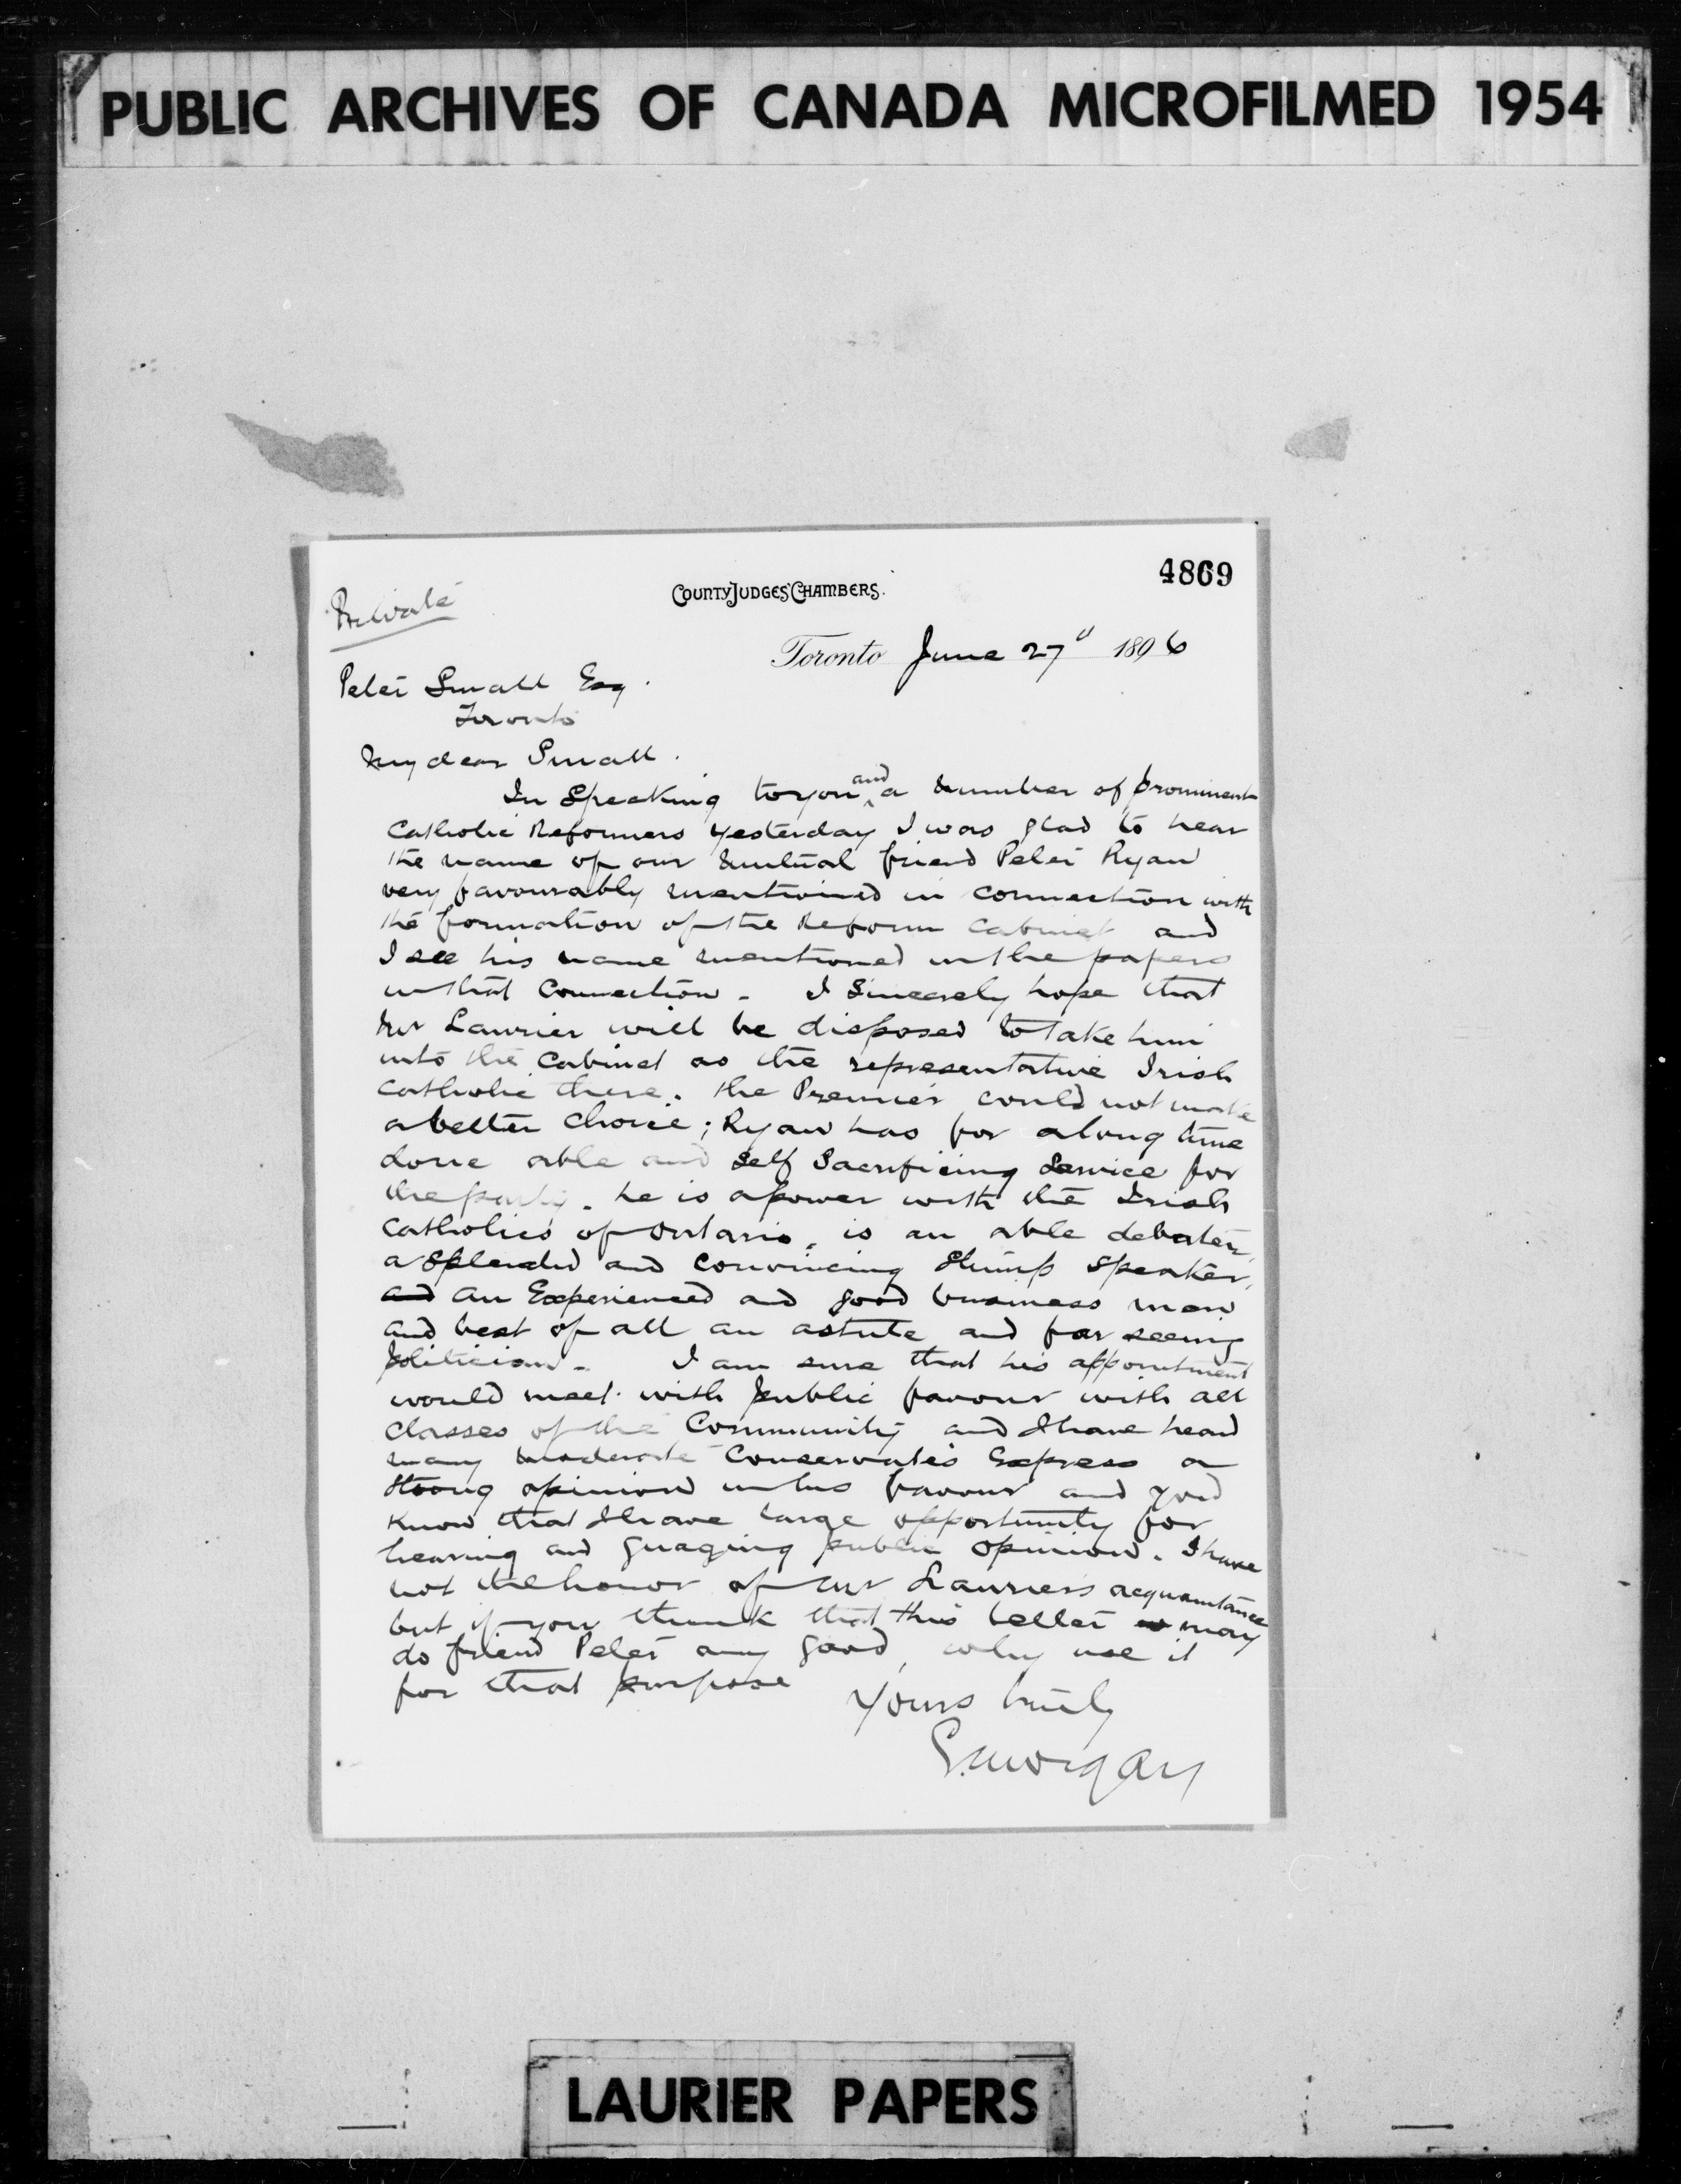 PUBLIC ARCHIVES OF CANADA MICROFILMED 1954
4869
COUNTY JUDGES' CHAMBERS.
Private
Toronto June 27" 1896
Peter Small Esq.
Toronto
My dear Small.
In Speaking to you and a number of prominent
Catholic Reformers yesterday I was glad to hear
the name of our mutual friend Peter Ryan
very favourably mentioned in connection with
the formation of the Reform Cabinet and
I see his name mentioned in the papers
in that Connection - I Sincerely hope that
Mr Laurier will be disposed to take him
into the Cabinet as the representative Irish
Catholic there. The Premier could not make
a better Choice; Ryan has for a long time
done able and Self Sacrificing Service for
the party. he is a power with the Irish
Catholics of Ontario, is an able debater,
a Splendid and Convincing Stump Speaker,
and an Experienced and good business man
and best of all an astute and far seeing
politician - I am sure that his appointment
would meet with public favour with all
Classes of the Community and I have heard
many moderate Conservatives Express a
Strong opinion in his favour and you
Know that I have large opportunity for
hearing and guaging public opinion. I have
not the honor of Mr Laurier's acquaintance
but if you think that this letter may
do friend Peter any good, why use it
for that purpose
Yours truly
E. Morgan
LAURIER PAPERS